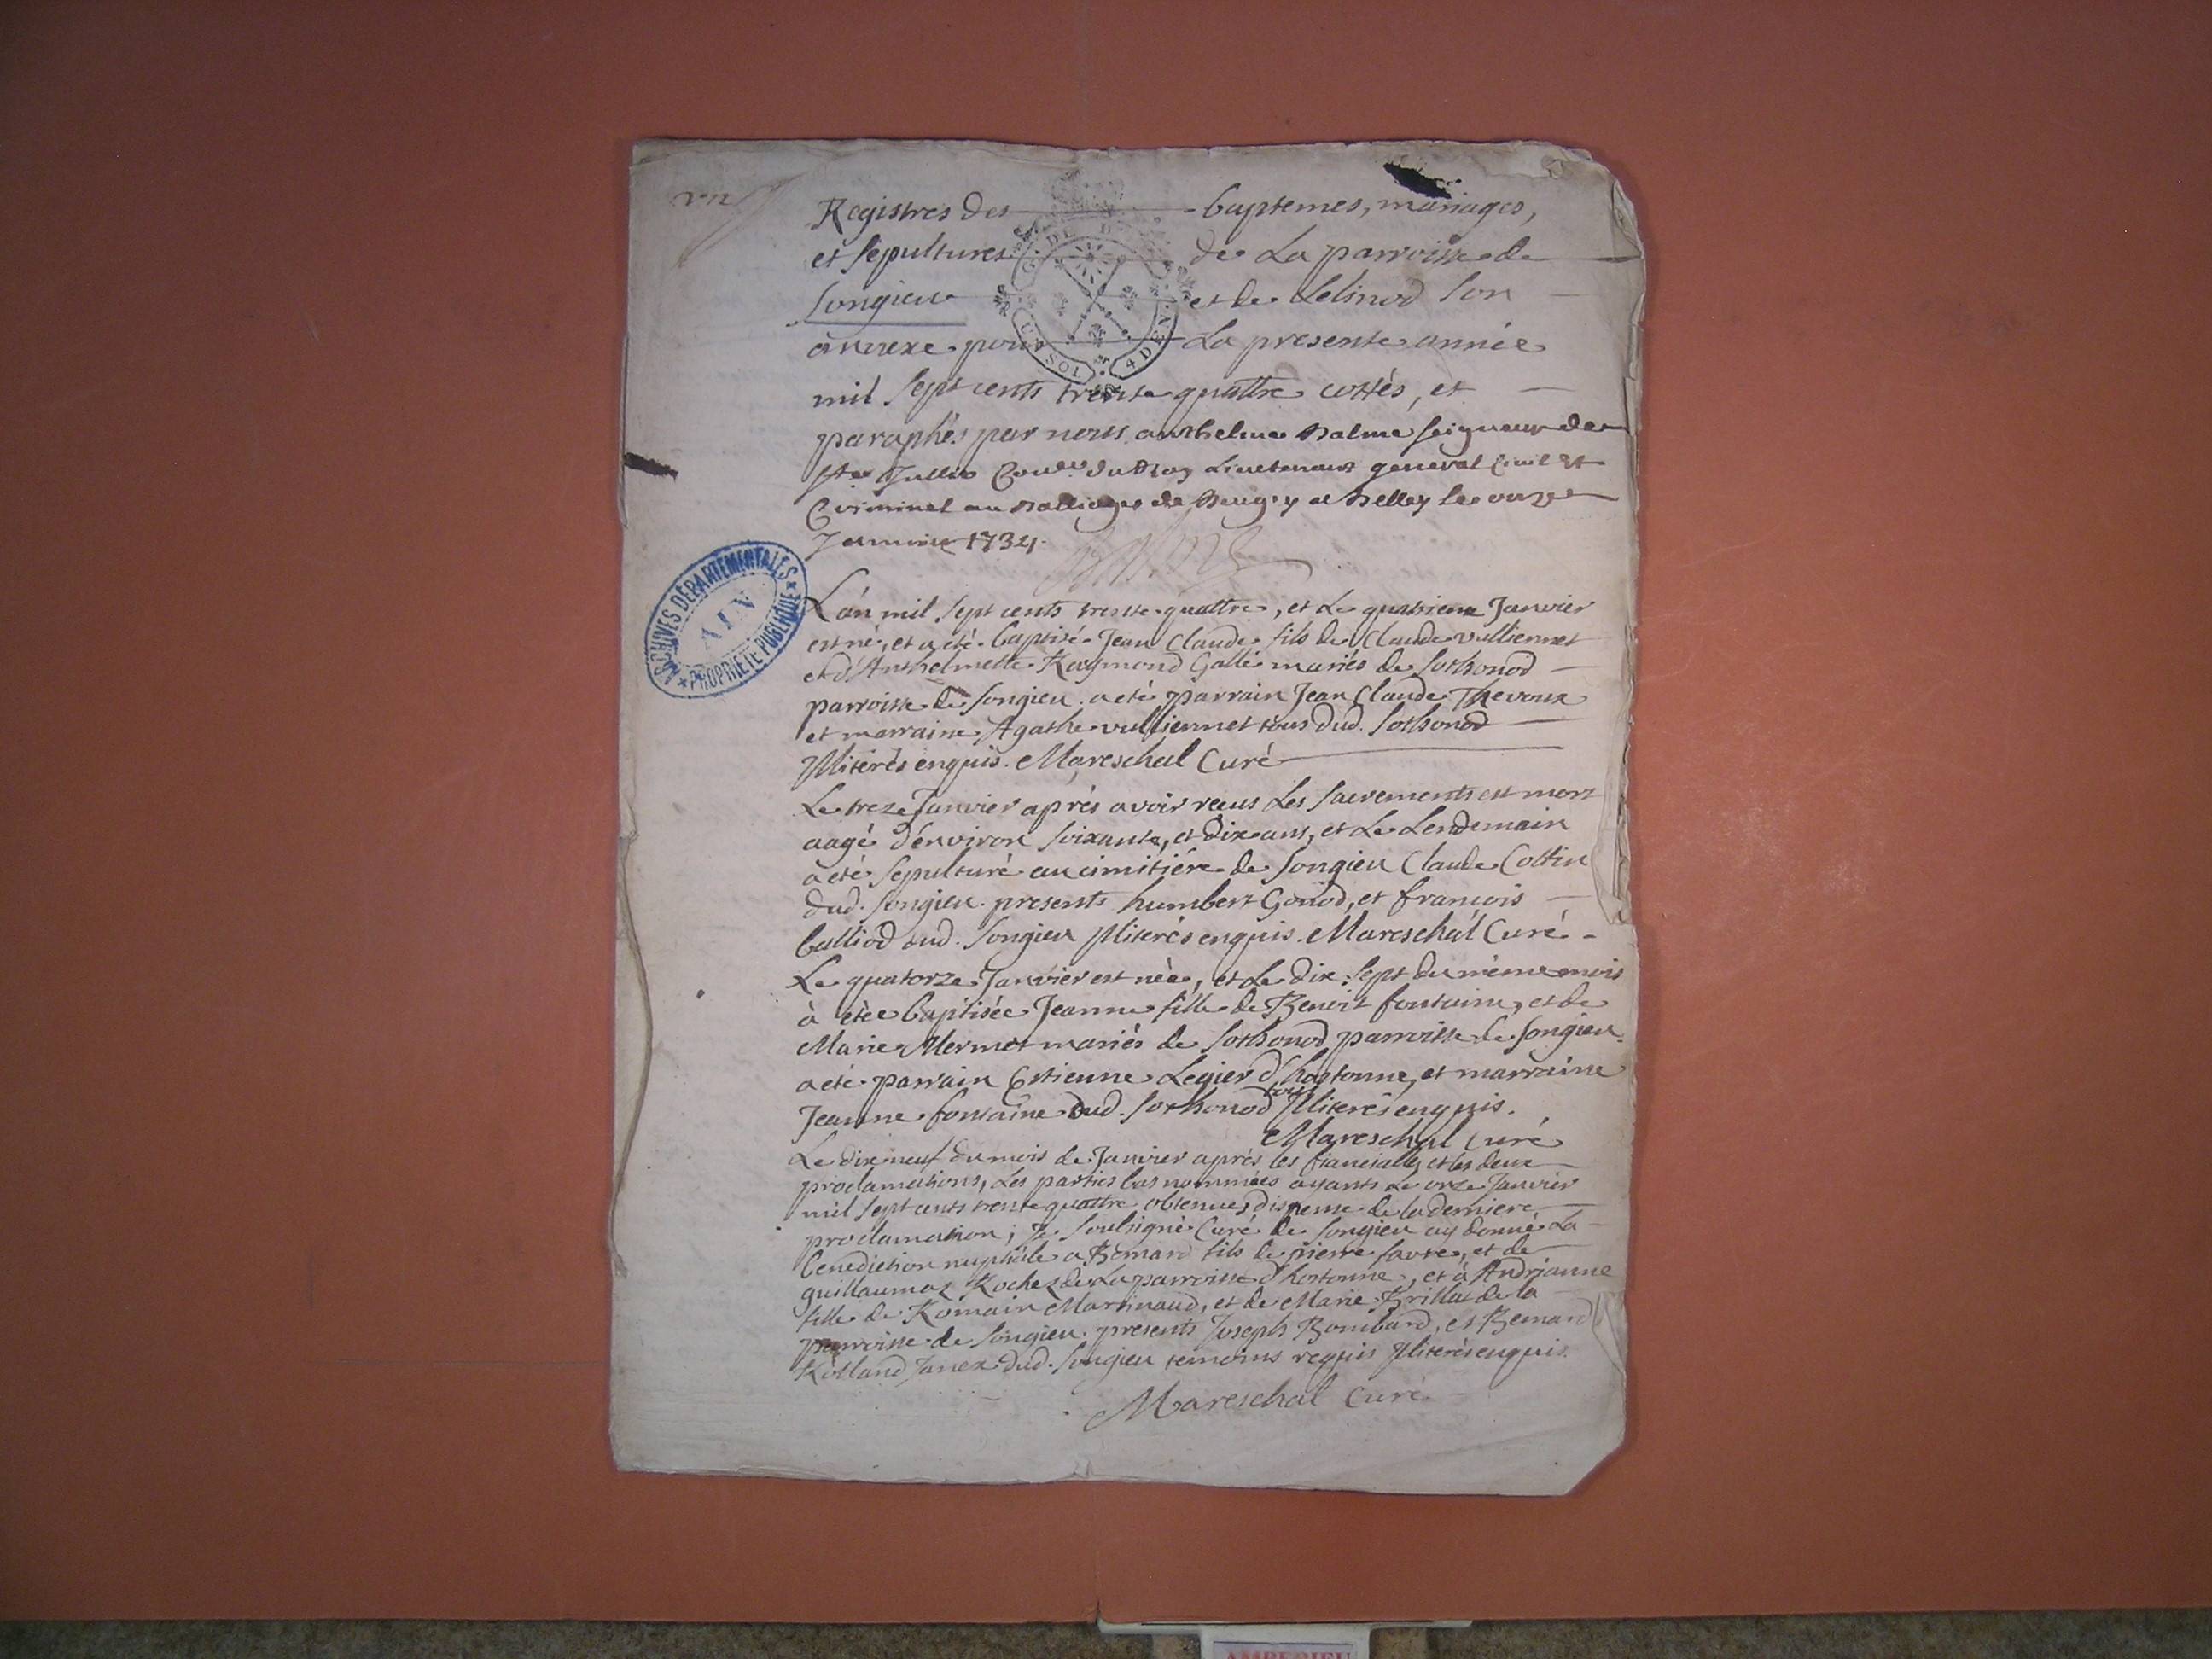 Registres des baptemes, mariages,
et sepultures de La parroisse de
Songieu et de Lélinod son
annexe pour La presente année
mil sept cents trente quattre cottés, et
paraphés par nous anthelme Balme seigneur de
Ste Jullie Conser du Roy Lieutenant general Civil et
Criminel au Balliage de Beugey a Belley le onze
Janvier 1734.
G. DE D.
UN SOL 4 DEN.
ARCHIVES DÉPARTEMENTALES
AIN
PROPRIÉTÉ PUBLIQUE
L'an mil sept cents trente quattre, et Le quatrieme Janvier
est né, et a été baptisé Jean Claude fils de Claude vulliermet
et d'Anthelmette Raymond Gallé mariés de Sothonod
parroisse de Songieu. a eté parrain Jean Claude Thevoux
et marraine Agathe vulliermet tous dud. Sothonod
Illiterés enquis. Mareschal Curé
Le treze Janvier aprés avoir reçus Les Sacrements est mort
aagé d'environ soixante, et dix ans, et Le Lendemain
a eté sepulturé au cimitiére de Songieu Claude Cottin
dud. Songieu. presents humbert Gonod, et françois
balliod dud. Songieu Illiterés enquis. Mareschal Curé
Le quatorze Janvier est née, et Le dix sept du même mois
à étée baptisée Jeanne fille de Benoit fontaine, et de
Marie Mermet mariés de Sothonod parroisse de Songieu.
a eté parrain Estienne Legier d'hostonne, et marraine
Jeanne fontaine dud. Sothonod tous Illiterés enquis.
Mareschal Curé
Le dix neuf du mois de Janvier aprés les fianciallés et les deux
proclamations, Les parties bas nommées ayants Le onze Janvier
mil sept cents trente quattre obtenue dispense de la derniere
proclamation; Je soubsigné Curé de Songieu ay donné La
benediction nuptiale a Bernard fils de pierre favre, et de
guillaumaz Rochez de La parroisse d'hostonne, et à Andrianne
fille de Romain Martinaud, et de Marie Brillat de la
parroisse de Songieu. presents Joseph Bombard, et Bernard
Rolland Janex dud. Songieu temoins requis Illiterés enquis.
Mareschal Curé